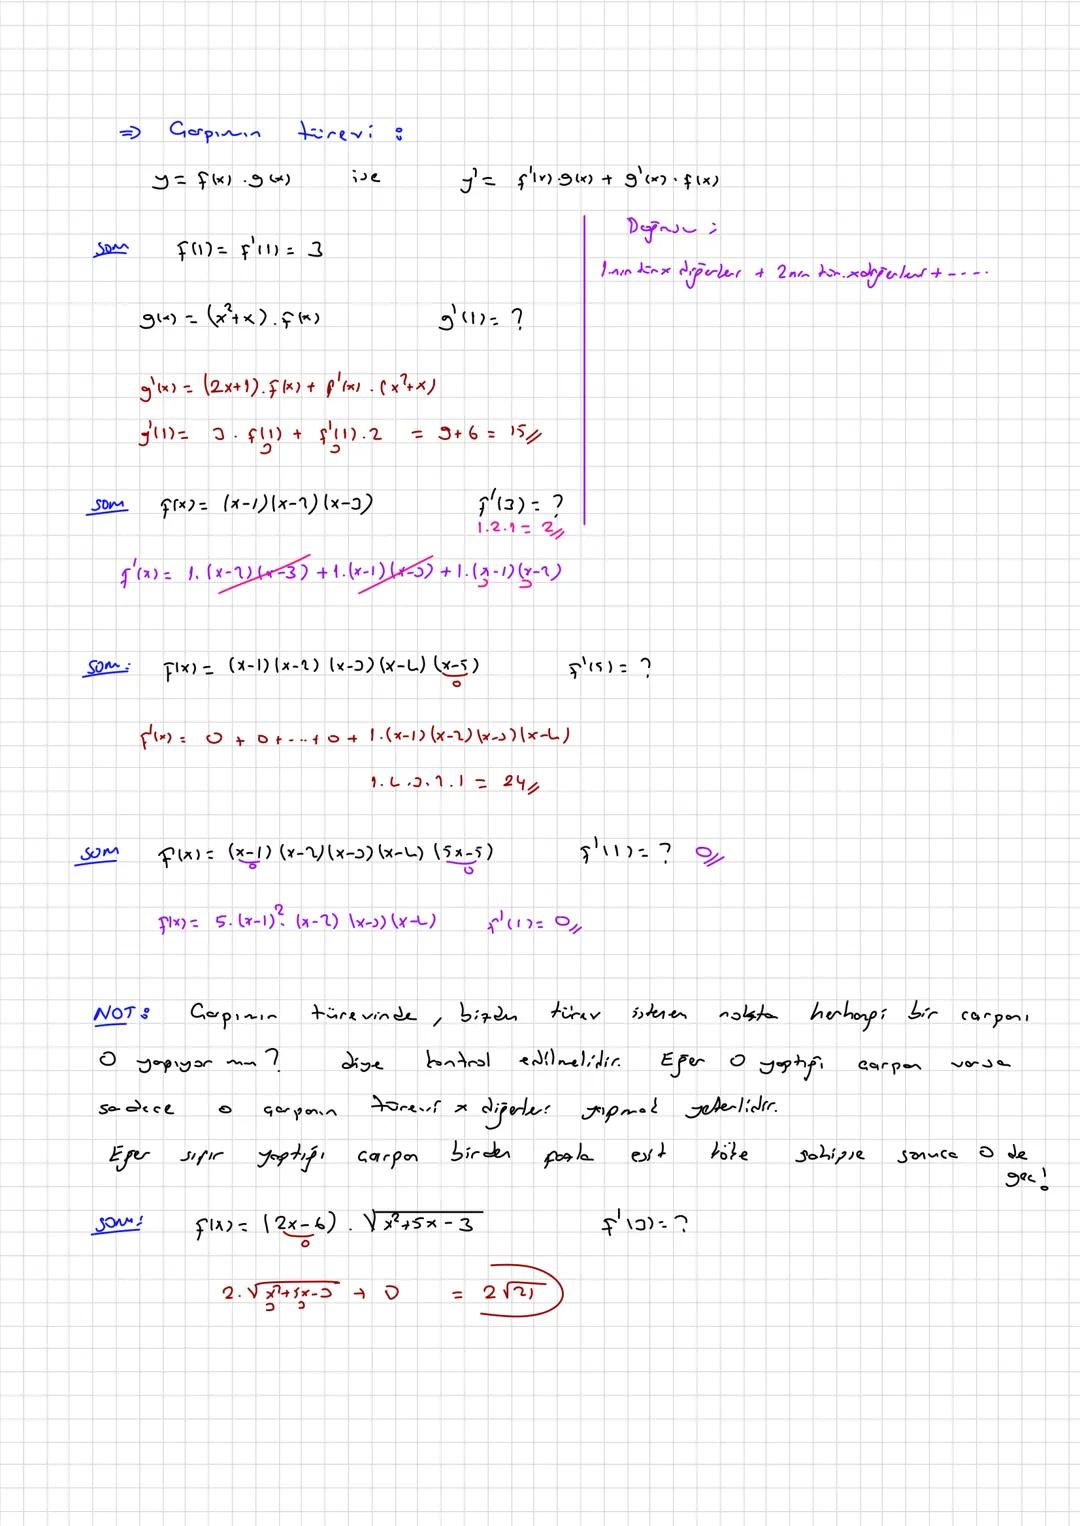 ⇒ Çarpımın türevi :
y = f(x) . g(x) ise y' = f'(x).g(x) + g'(x).f(x)
Doğrusu :
1.nin tür x diğerleri + 2.nin tür. x diğerleri + ----
soru f(1) = f'(1) = 3
g(x) = (x²+x).f(x) g'(1) = ?
g'(x) = (2x+1).f(x) + f'(x).(x²+x)
g'(1) = 3.f(1) + f'(1).2 = 9+6 = 15//
3 3
soru f(x) = (x-1)(x-2)(x-3) f'(3) = ?
1.2.1 = 2//
f'(x) = 1.(x-2)(x-3) + 1.(x-1)(x-3) + 1.(x-1)(x-2)
3 3
soru: f(x) = (x-1)(x-2)(x-3)(x-4)(x-5) f'(5) = ?
0
f'(x) = 0 + 0 + ... + 0 + 1.(x-1)(x-2)(x-3)(x-4)
1.4.3.2.1 = 24//
soru f(x) = (x-1)(x-2)(x-3)(x-4)(5x-5) f'(1) = ? 0//
0 0
f(x) = 5.(x-1)².(x-2)(x-3)(x-4) f'(1) = 0//
NOT: Çarpımın türevinde, bizden türev istenen nokta herhangi bir çarpanı
0 yapıyor mu? diye kontrol edilmelidir. Eğer 0 yaptığı çarpan varsa
sadece o çarpanın türevi x diğerleri yapmak yeterlidir.
Eğer sıfır yaptığı çarpan birden fazla eşit köke sahipse sonuca 0 de
geç!
soru: f(x) = (2x-6).√x²+5x-3 f'(3) = ?
0
2.√x²+5x-3 + 0 = 2√21
3 3